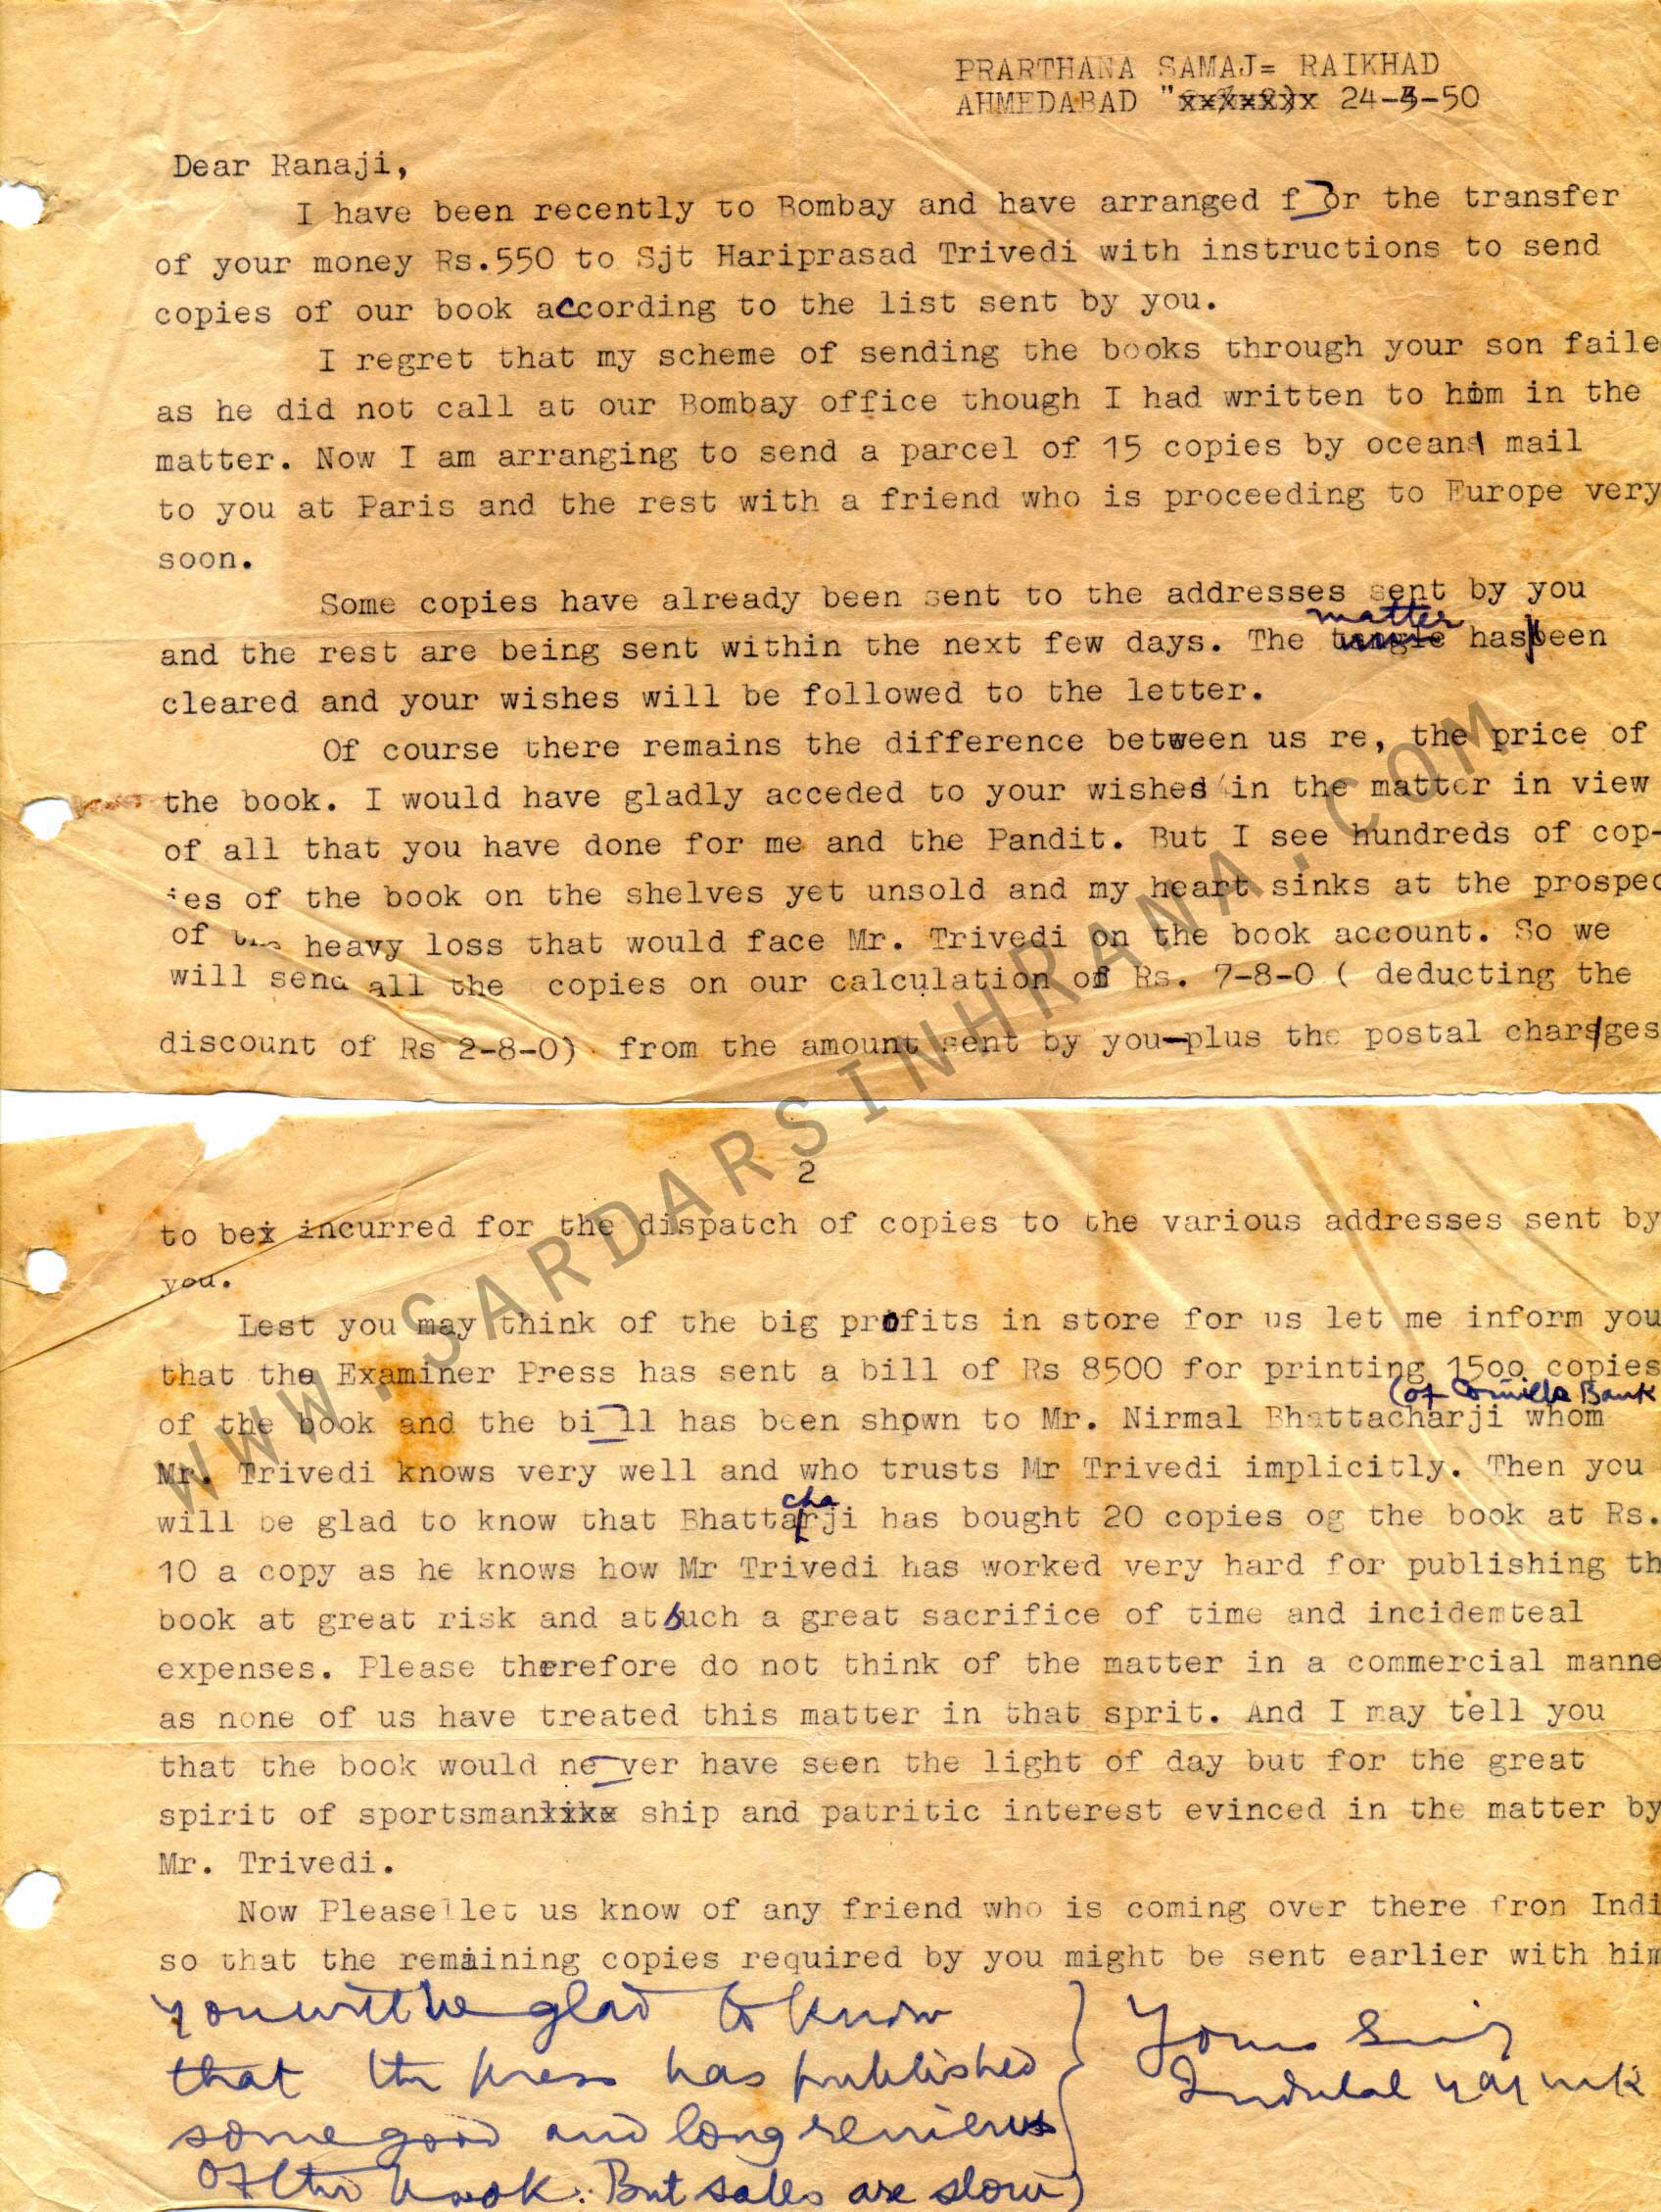 PRARTHANA SAMAJ= RAIKHAD
AHMEDABAD " 24-3-50
Dear Ranaji,
I have been recently to Bombay and have arranged for the transfer
of your money Rs.550 to Sjt Hariprasad Trivedi with instructions to send
copies of our book according to the list sent by you.
I regret that my scheme of sending the books through your son faile
as he did not call at our Bombay office though I had written to him in the
matter. Now I am arranging to send a parcel of 15 copies by ocean mail
to you at Paris and the rest with a friend who is proceeding to Europe very
soon.
Some copies have already been sent to the addresses sent by you
matter
and the rest are being sent within the next few days. The has been
cleared and your wishes will be followed to the letter.
Of course there remains the difference between us re, the price of
the book. I would have gladly acceded to your wishes in the matter in view
of all that you have done for me and the Pandit. But I see hundreds of cop-
ies of the book on the shelves yet unsold and my heart sinks at the prospec
of the heavy loss that would face Mr. Trivedi on the book account. So we
will send all the copies on our calculation of Rs. 7-8-0 ( deducting the
discount of Rs 2-8-0) from the amount sent by you-plus the postal charges
2
to be incurred for the dispatch of copies to the various addresses sent by
you.
Lest you may think of the big profits in store for us let me inform you
that the Examiner Press has sent a bill of Rs 8500 for printing 1500 copies
(of Comilla Bank
of the book and the bill has been shown to Mr. Nirmal Bhattacharji whom
Mr. Trivedi knows very well and who trusts Mr Trivedi implicitly. Then you
will be glad to know that Bhattacharji has bought 20 copies og the book at Rs.
10 a copy as he knows how Mr Trivedi has worked very hard for publishing th
book at great risk and at such a great sacrifice of time and incidemteal
expenses. Please therefore do not think of the matter in a commercial manne
as none of us have treated this matter in that sprit. And I may tell you
that the book would never have seen the light of day but for the great
spirit of sportsman ship and patritic interest evinced in the matter by
Mr. Trivedi.
Now Please let us know of any friend who is coming over there fron Indi
so that the remaining copies required by you might be sent earlier with him
you will be glad to know
that the press has published
some good and long reviews
of the book. But sales are slow
Yours Sincly
Indulal Yajnik
WWW.SARDARSINHRANA.COM